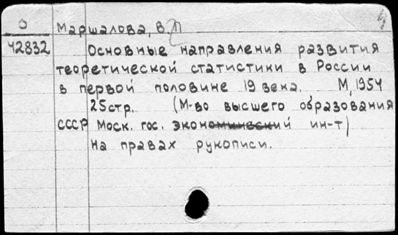 О
42832
Маршалова, В. П
Основные направления развития
теоретической статистики в России
в первой половине 19 века. М, 1954
25стр. (М-во высшего образования
СССР Моск. гос. экономический ин-т)
На правах рукописи.